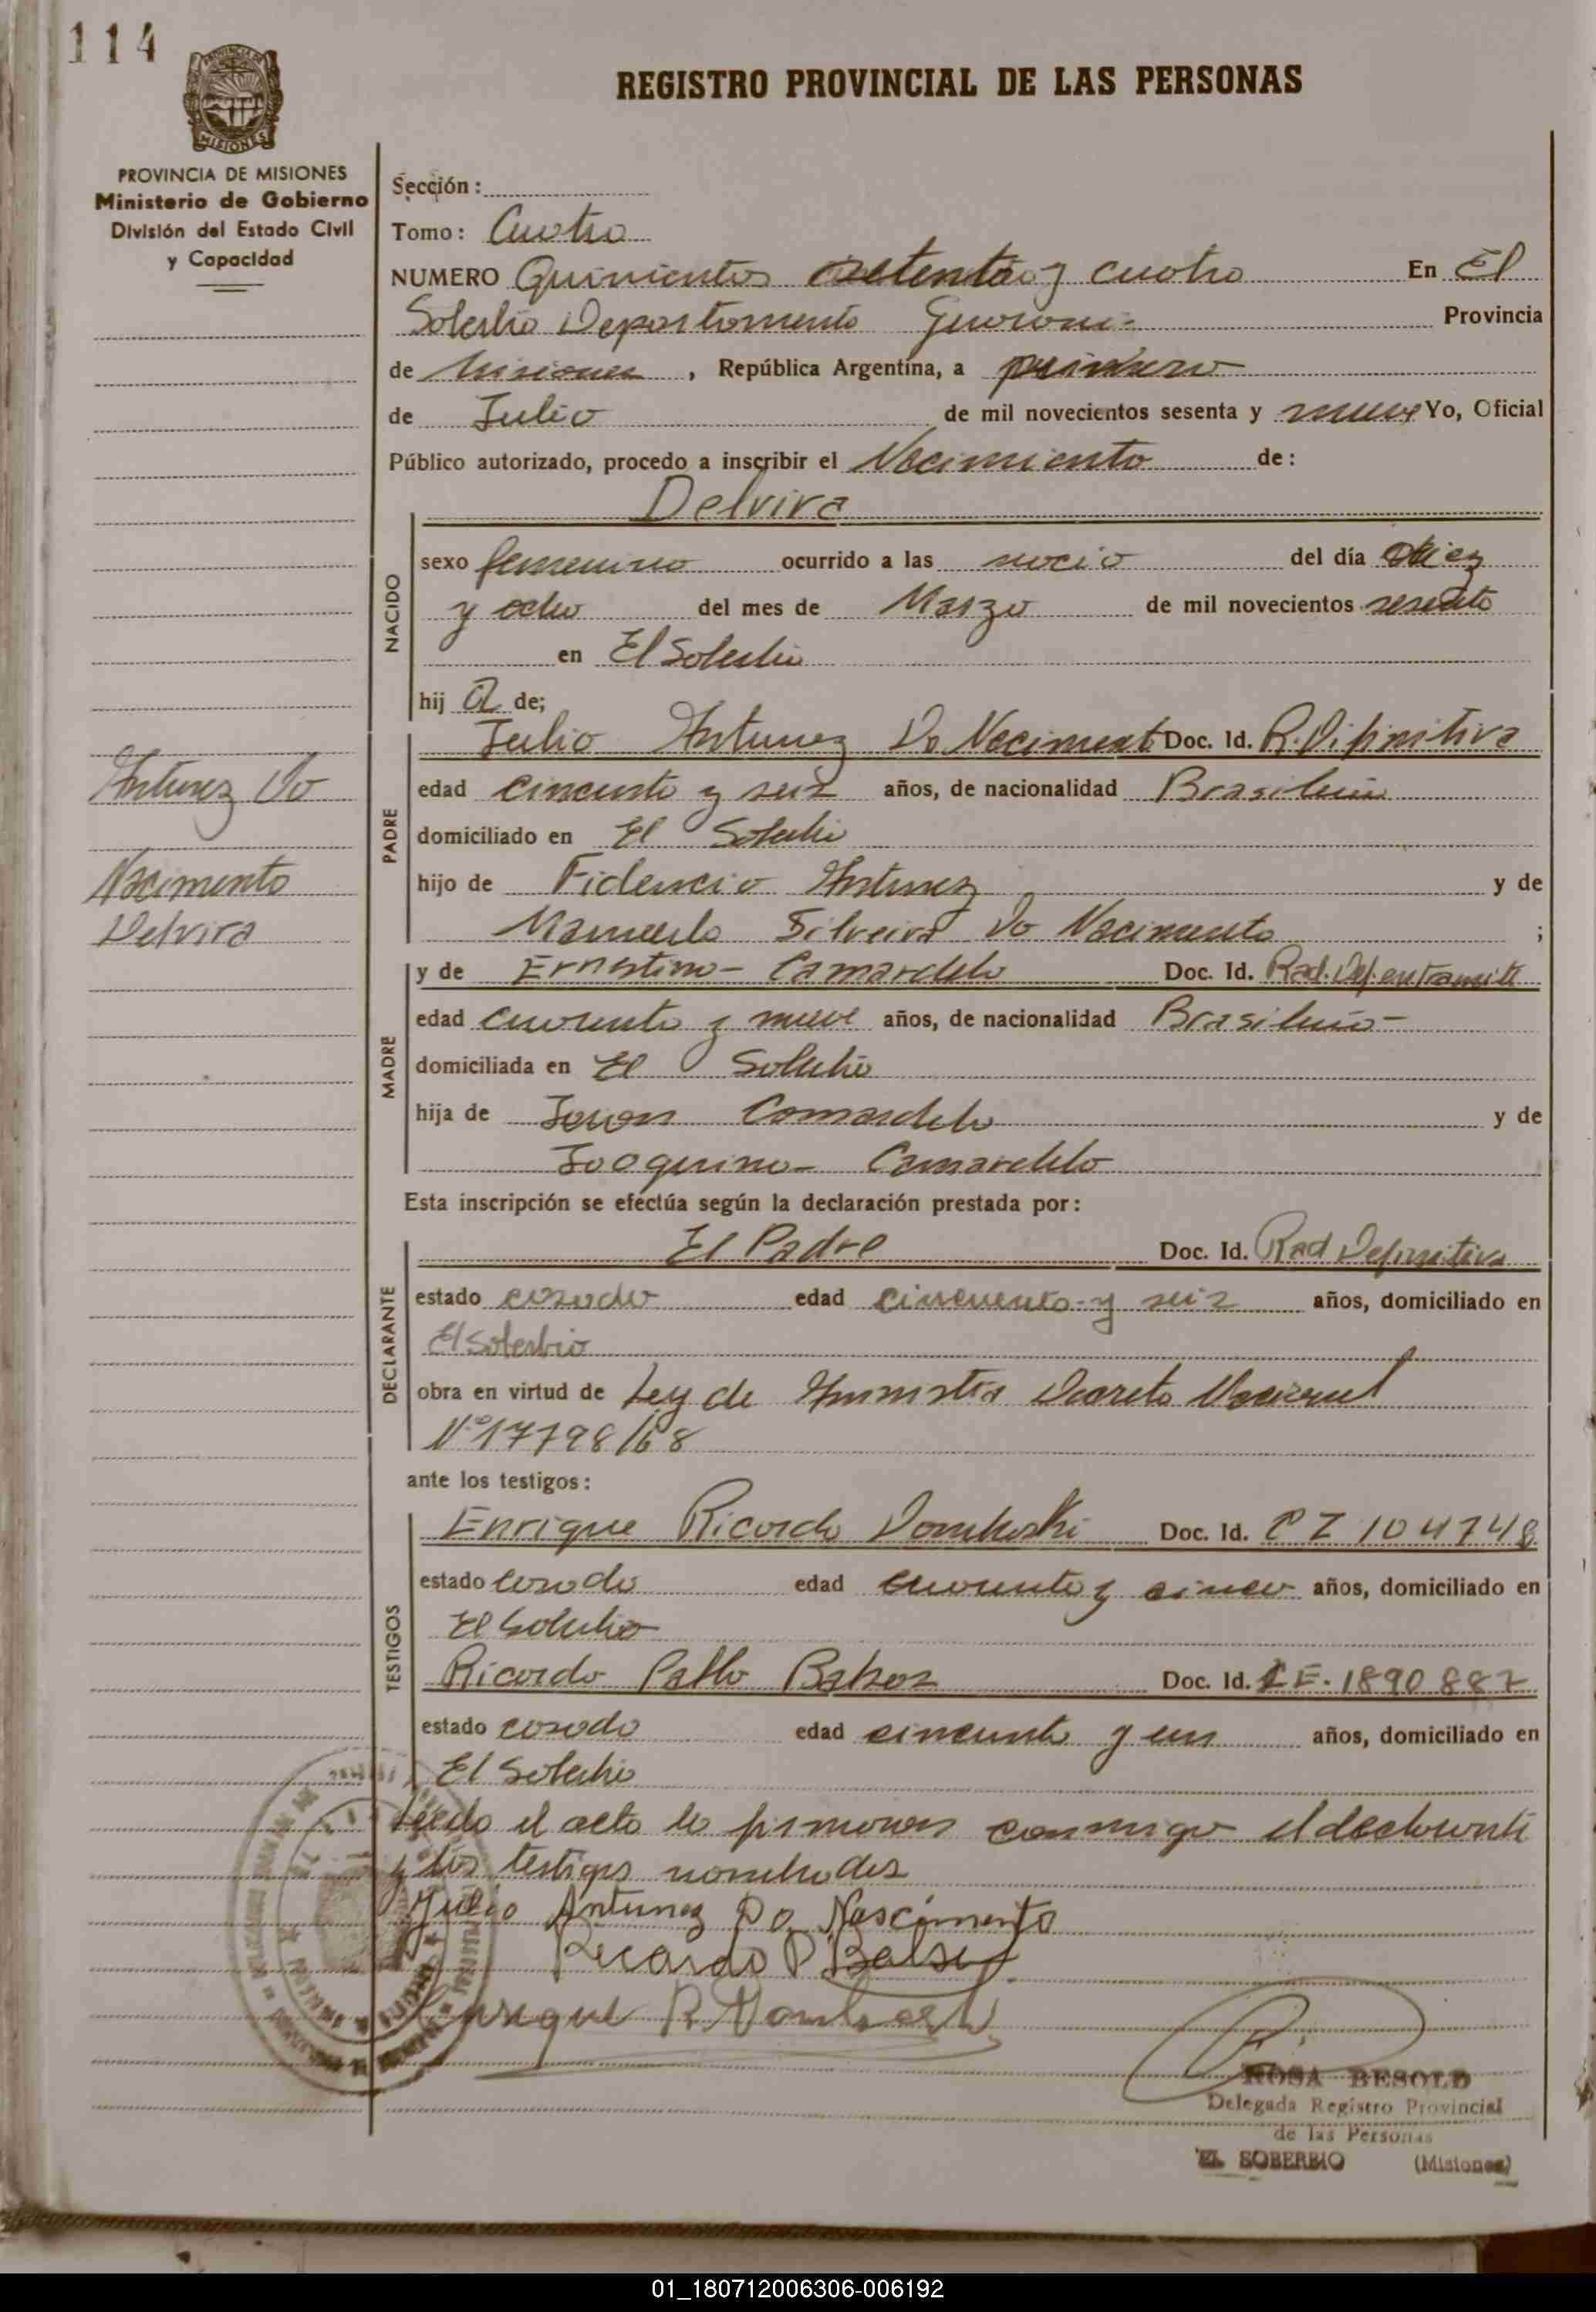 114
REGISTRO PROVINCIAL DE LAS PERSONAS
PROVINCIA DE MISIONES
Ministerio de Gobierno
División del Estado Civil
y Capacidad
Sección:
Tomo: Cuatro
NUMERO Quinientos setenta y cuatro En El
Soberbio Departamento Guarani Provincia
de Misiones, República Argentina, a primero
de Julio de mil novecientos sesenta y nueve Yo, Oficial
Público autorizado, procedo a inscribir el Nacimiento de:
Delvira
NACIDO
sexo femenino ocurrido a las del día diez
y ocho del mes de Marzo de mil novecientos sesenta
en El Soberbio
hij a de;
PADRE
Julio Antunez Do Naciment Doc. Id. R. Difinitiva
edad cincuenta y seis años, de nacionalidad Brasileña
domiciliado en El Soberbio
hijo de Fidencio Antunez y de
Manuela Silveira Do Nacimento ;
Antunez Do
Nacimento
Delvira
MADRE
y de Ernestina Camardelo Doc. Id. Rad. Def. en tramite
edad cuarenta y nueve años, de nacionalidad Brasileña
domiciliada en El Soberbio
hija de Camardelo y de
Joaquina Camardelo
Esta inscripción se efectúa según la declaración prestada por:
DECLARANTE
El Padre Doc. Id. Rad Definitiva
estado casado edad cincuenta y seis años, domiciliado en
El Soberbio
obra en virtud de Ley de Amnistia Decreto Nacional
Nº 17798/68
ante los testigos:
TESTIGOS
Enrique Ricardo Domboski Doc. Id. 104748
estado casado edad cuarenta y cinco años, domiciliado en
El Soberbio
Ricardo Pablo Doc. Id. 1890887
estado casado edad cincuenta y un años, domiciliado en
El Soberbio
Leido el acta la firmaron conmigo el declarante
y los testigos nombrados
Julio Antunez Do Nascimento
Ricardo P
Enrique R.
ROSA BESOLD
Delegada Registro Provincial
de las Personas
EL SOBERBIO (Misiones)
01_180712006306-006192